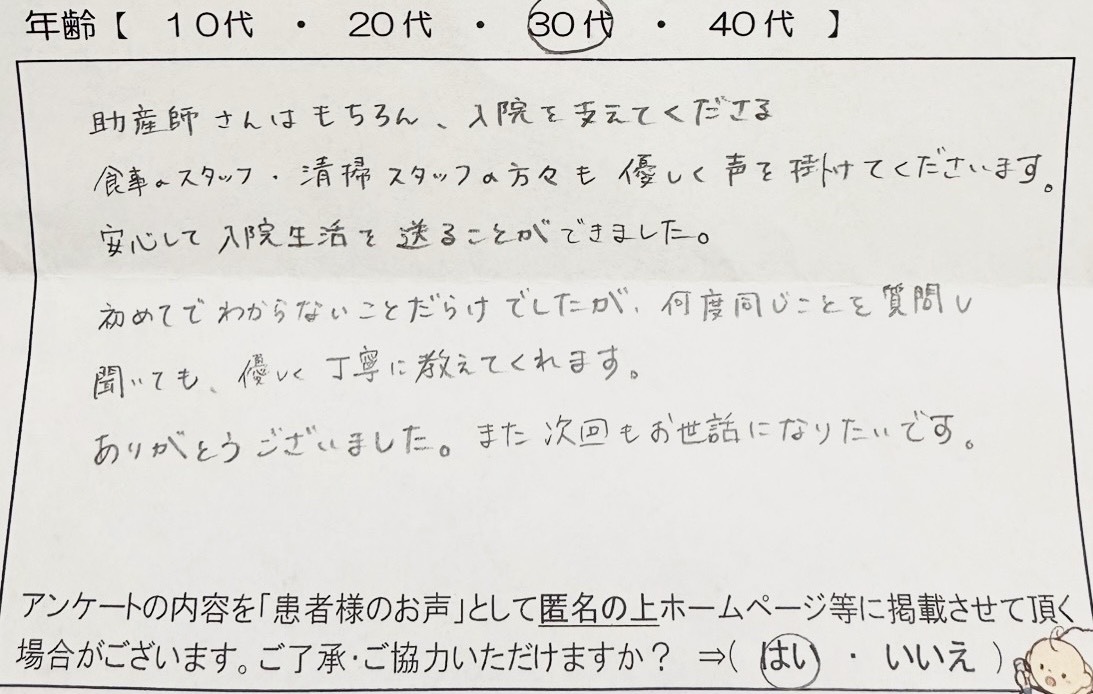 年齢【 10代 ・ 20代 ・ 30代 ・ 40代 】
助産師さんはもちろん、入院を支えてくださる
食事のスタッフ・清掃スタッフの方々も優しく声を掛けてくださいます。
安心して入院生活を送ることができました。
初めてでわからないことだらけでしたが、何度同じことを質問し
聞いても、優しく丁寧に教えてくれます。
ありがとうございました。また次回もお世話になりたいです。
アンケートの内容を「患者様のお声」として匿名の上ホームページ等に掲載させて頂く
場合がございます。ご了承・ご協力いただけますか？ ⇒( はい ・ いいえ )